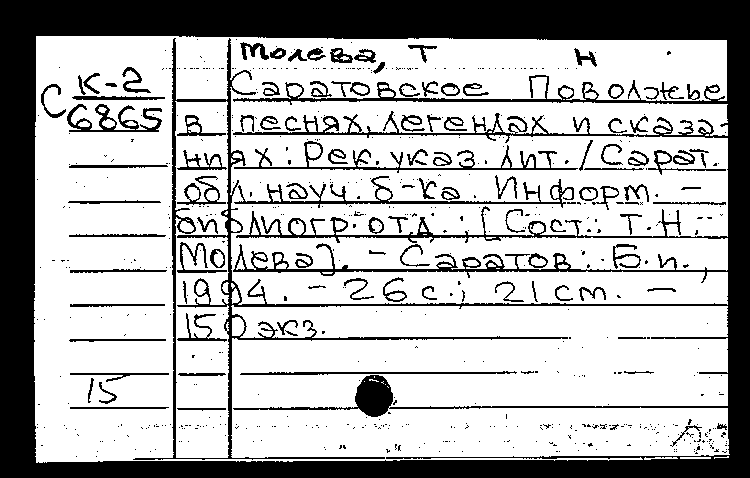 Молева, Т Н
С К-2 Саратовское Поволжье
6865 в песнях, легендах и сказа-
ниях: Рек. указ. лит. / Сарат.
обл. науч. б-ка. Информ. -
библиогр. отд.; [Сост.: Т.Н.
Молева]. - Саратов: Б.и.,
1994. - 26 с.; 21 cm. -
150 экз.
15